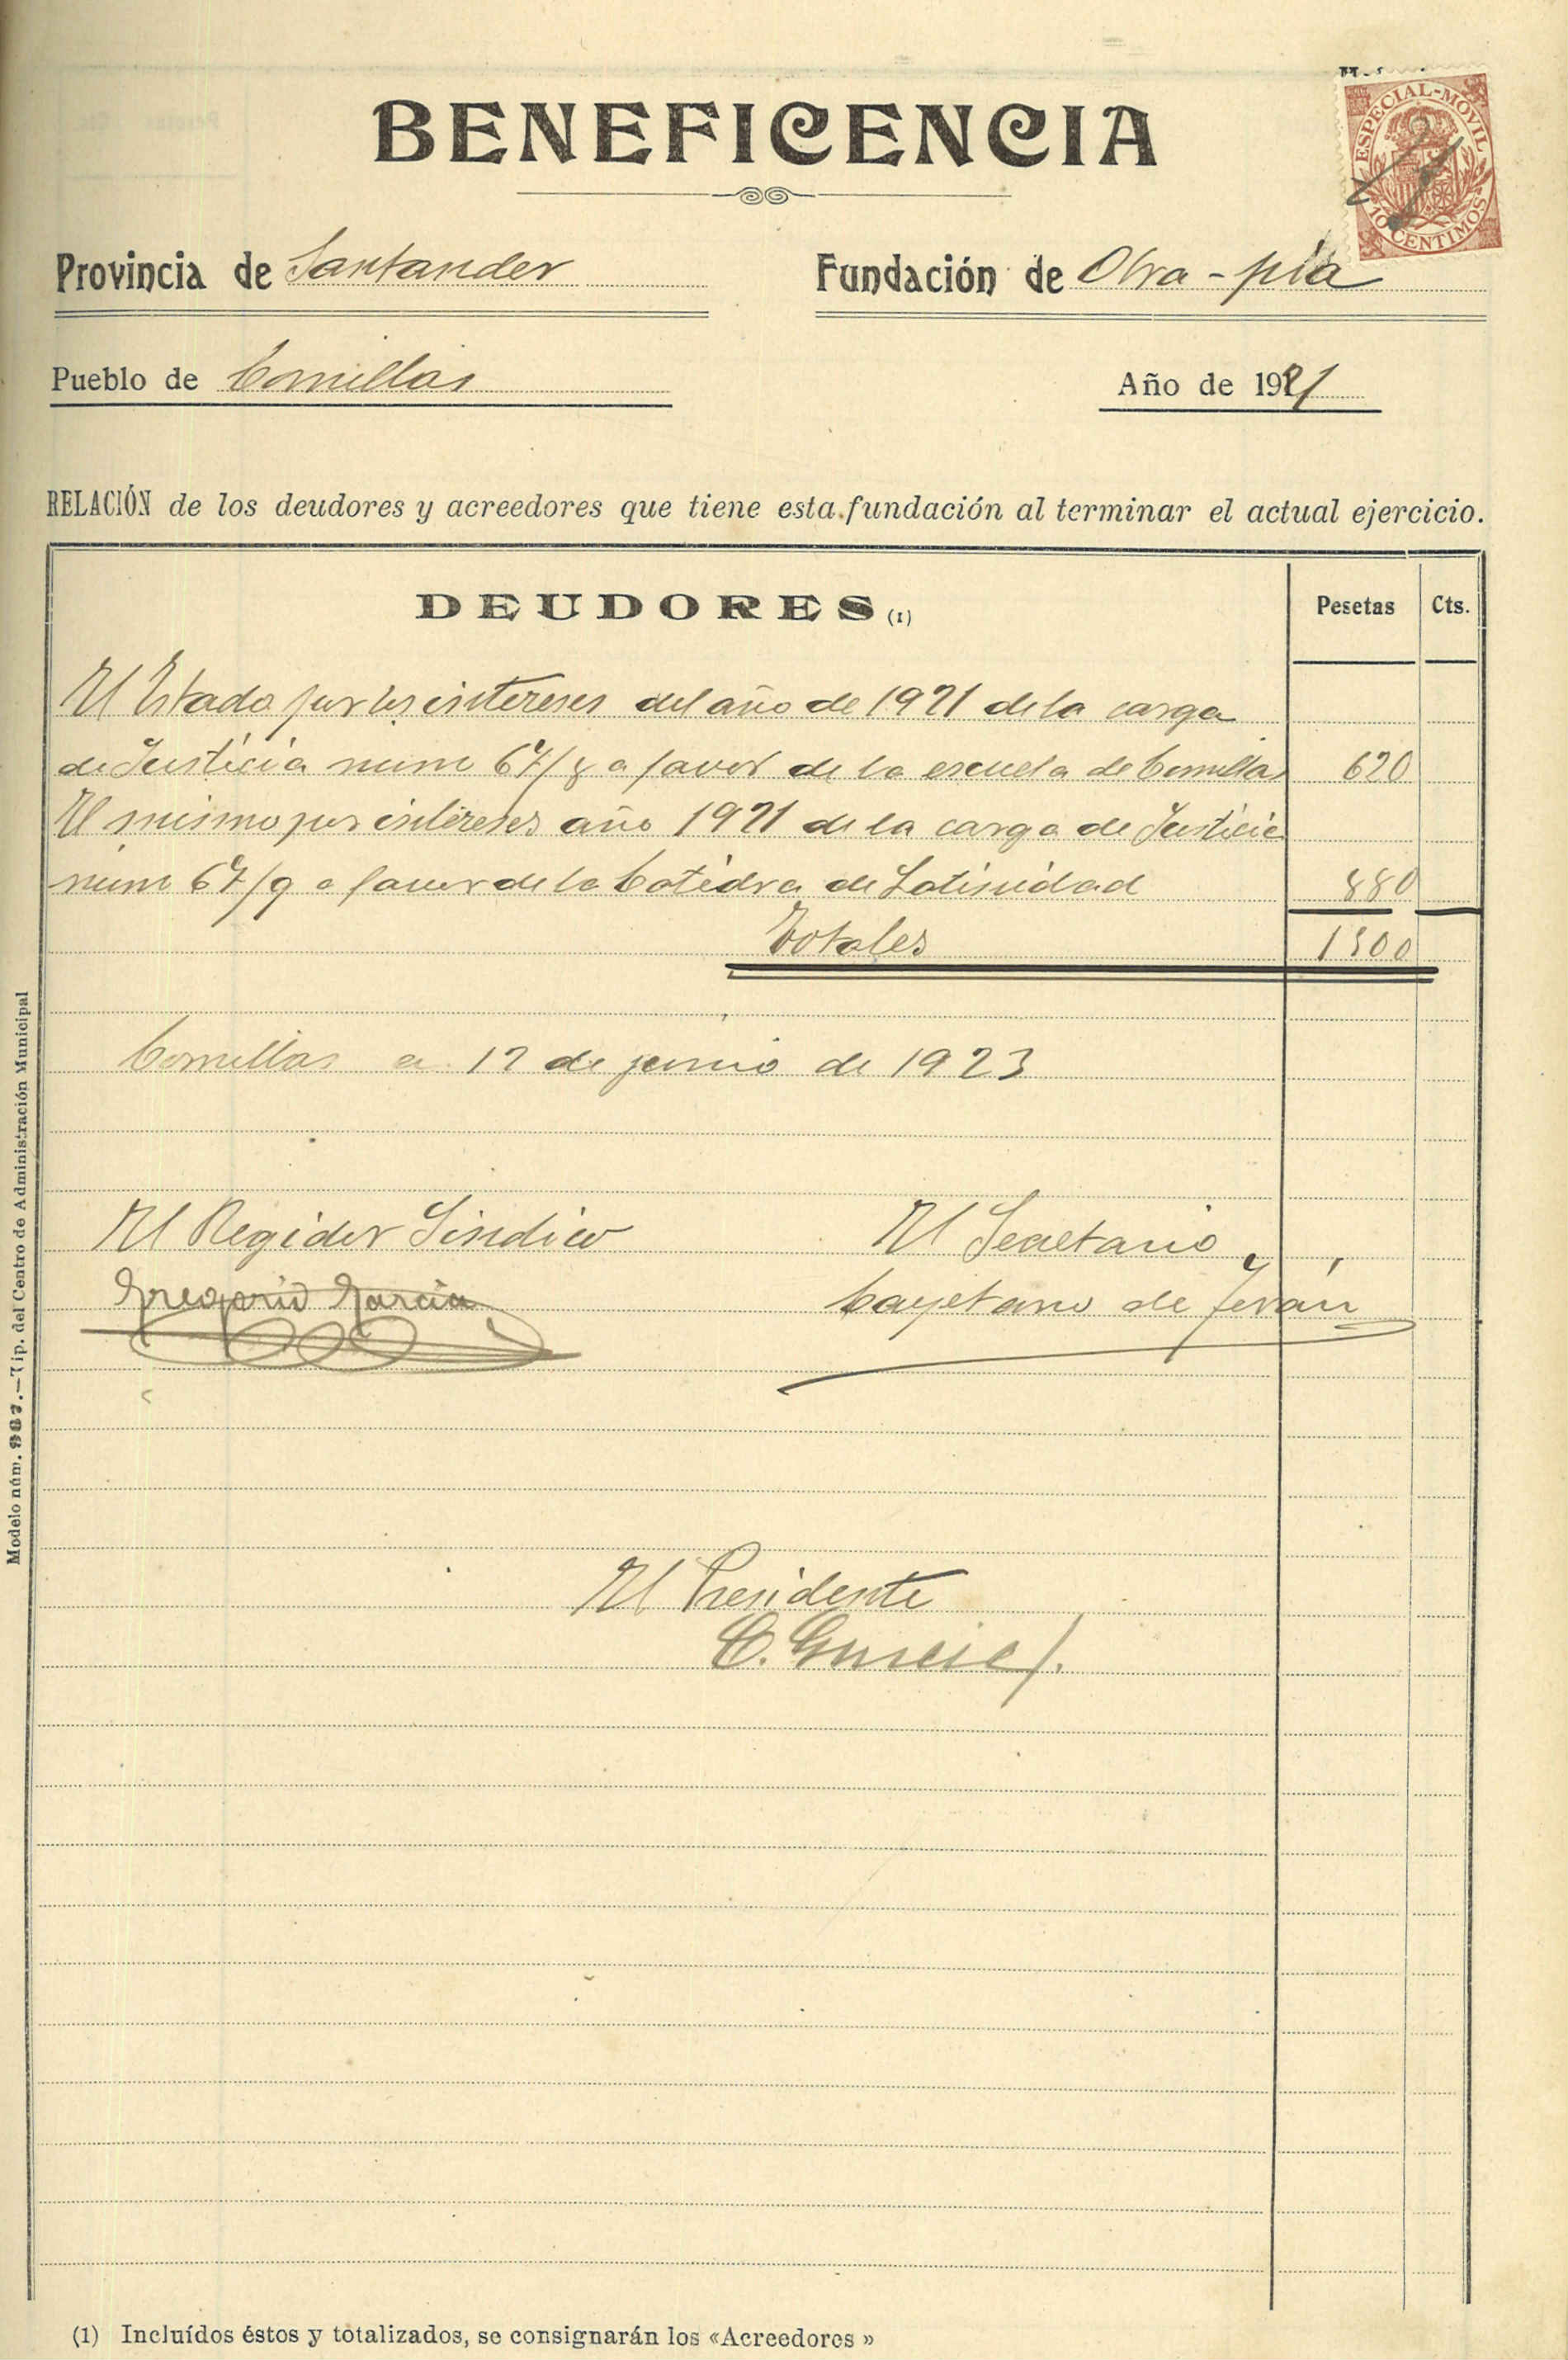 BENEFICENCIA
ESPECIAL-MOVIL
10 CENTIMOS
Provincia de Santander
Fundación de Obra-pía
Pueblo de Comillas
Año de 1921
RELACIÓN de los deudores y acreedores que tiene esta fundación al terminar el actual ejercicio.
DEUDORES (1) Pesetas Cts.
El Estado por los intereses del año de 1921 de la carga
de Justicia núm 67/8 a favor de la escuela de Comillas 620
El mismo por intereses año 1921 de la carga de Justicia
núm 67/9 a favor de la Catédra de Latinidad 880
Totales 1500
Comillas a 12 de junio de 1923
El Regidor Sindico El Secretario
Gregorio García Cayetano de
El Presidente
C. García
Modelo núm. .—Tip. del Centro de Administración Municipal
(1) Incluídos éstos y totalizados, se consignarán los «Acreedores»